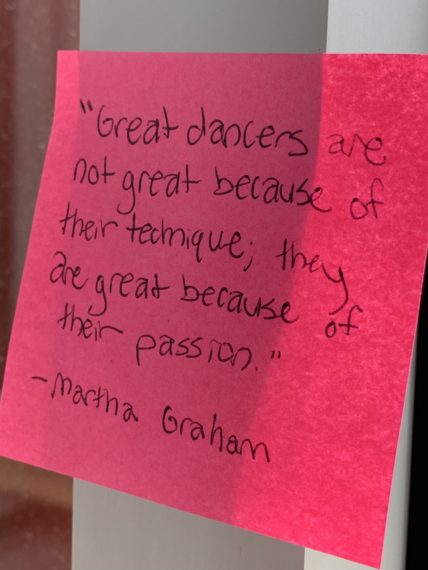 "Great dancers are
not great because of
their technique; they
are great because of
their passion."
-Martha Graham